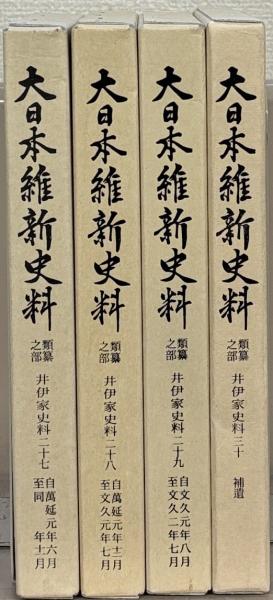 大日本維新史料
類纂
之部
井伊家史料二十七
自萬延元年六月
至同　年十一月
大日本維新史料
類纂
之部
井伊家史料二十八
自萬延元年十二月
至文久元年七月
大日本維新史料
類纂
之部
井伊家史料二十九
自文久元年八月
至文久二年七月
大日本維新史料
類纂
之部
井伊家史料三十
補遺